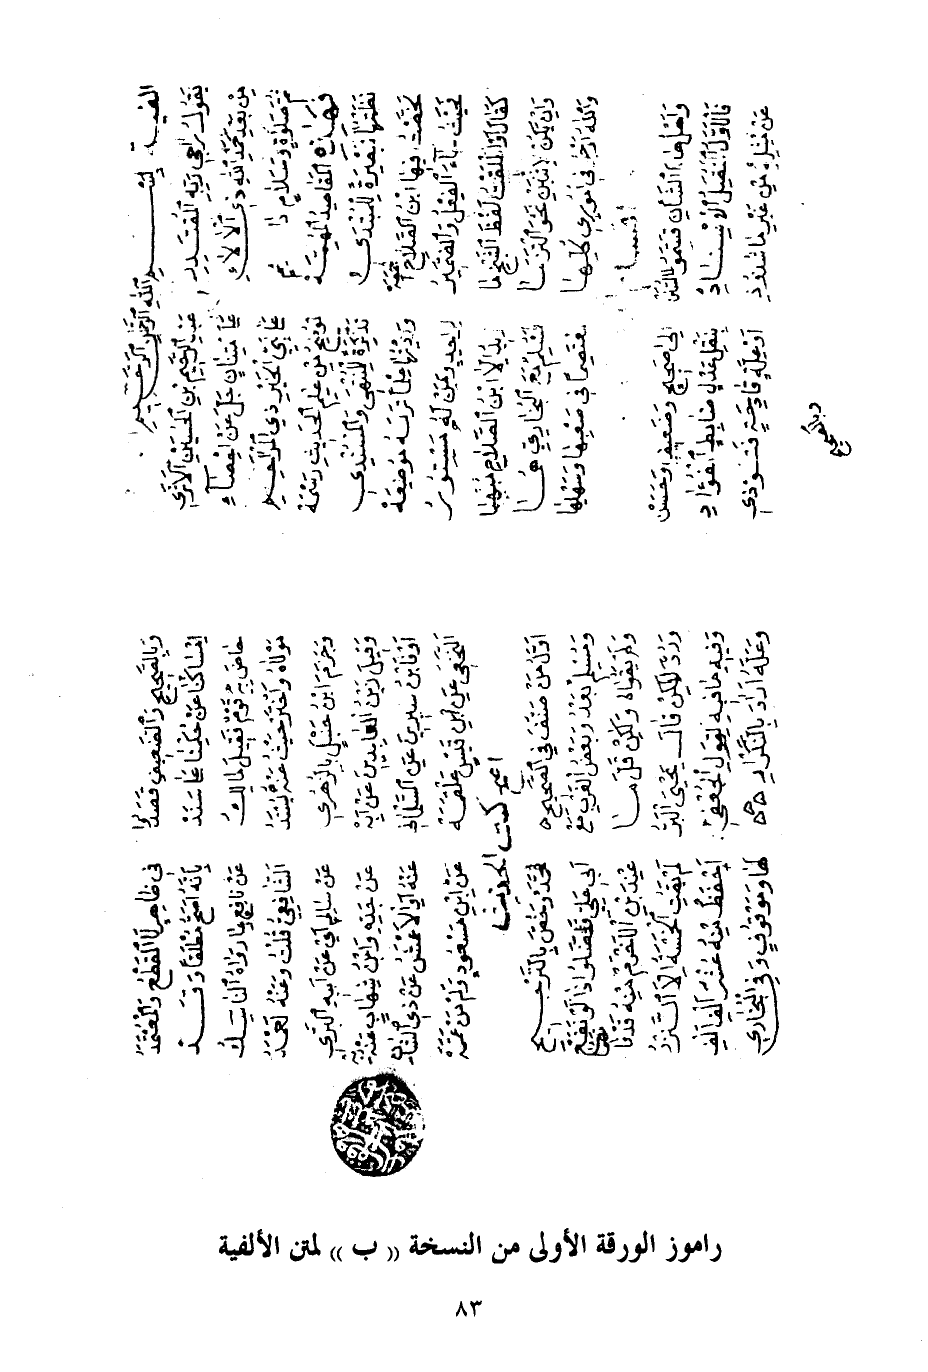 الفية
بسم الله الرحمن الرحيم
يقول راجي ربه المقتدر عبد الرحيم بن الحسين الأثري
من بعد حمد الله ذي الآلاء على امتنان جل عن إحصاء
ثم صلاة وسلام دائم على نبي الخير ذي المراحم
فهذه المقاصد المهمة توضح من علم الحديث رسمه
نظمتها تبصرة للمبتدي تذكرة للمنتهي والمسند
لخصت فيها ابن الصلاح أجمعه وزدتها علما تراه موضعه
فحيث جاء الفعل والضمير لواحد ومن له مستور
كقال أو أطلقت لفظ الشيخ ما أريد إلا ابن الصلاح مبهما
وإن يكن لاثنين نحو التزما فمسلم مع البخاري هما
والله أرجو في أموري كلها معتصما في صعبها وسهلها
أقسام
وأهل هذا الشان قسموا السنن إلى صحيح وضعيف وحسن
فالأول المتصل الإسناد بنقل عدل ضابط الفؤاد
عن مثله من غير ما شذوذ أو علة قادحة فتوذي
وبالصحيح
وبالصحيح والضعيف قصدوا في ظاهر لا القطع والمعتمد
إمساكنا عن حكمنا على سند بأنه أصح مطلقا وقد
خاض به قوم فقيل مالك عن نافع بما رواه الناسك
مولاه واختر حيث عنه يسند الشافعي قلت وعنه أحمد
وجزم ابن حنبل بالزهري عن سالم أي عن أبيه البري
وقيل زين العابدين عن أبه عن جده وابن شهاب عنه به
أو فابن سيرين عن السلماني عنه أو الأعمش عن ذي الشان
النخعي عن ابن قيس علقمة عن ابن مسعود ولم من عممه
أصح كتب الحديث
أول من صنف في الصحيح محمد وخص بالترجيح
ومسلم بعد وبعض الغرب مع أبي علي فضلوا ذا لو نفع
ولم يعماه ولكن قل ما عند ابن الأخرم منه قد فاتهما
ورد لكن قال يحيى البر لم يفت الخمسة إلا النزر
وفيه ما فيه لقول الجعفي أحفظ منه عشر ألف ألف
وعله أراد بالتكرار لها وموقوف وفي البخاري
راموز الورقة الأولى من النسخة (( ب )) لمتن الألفية
٨٣